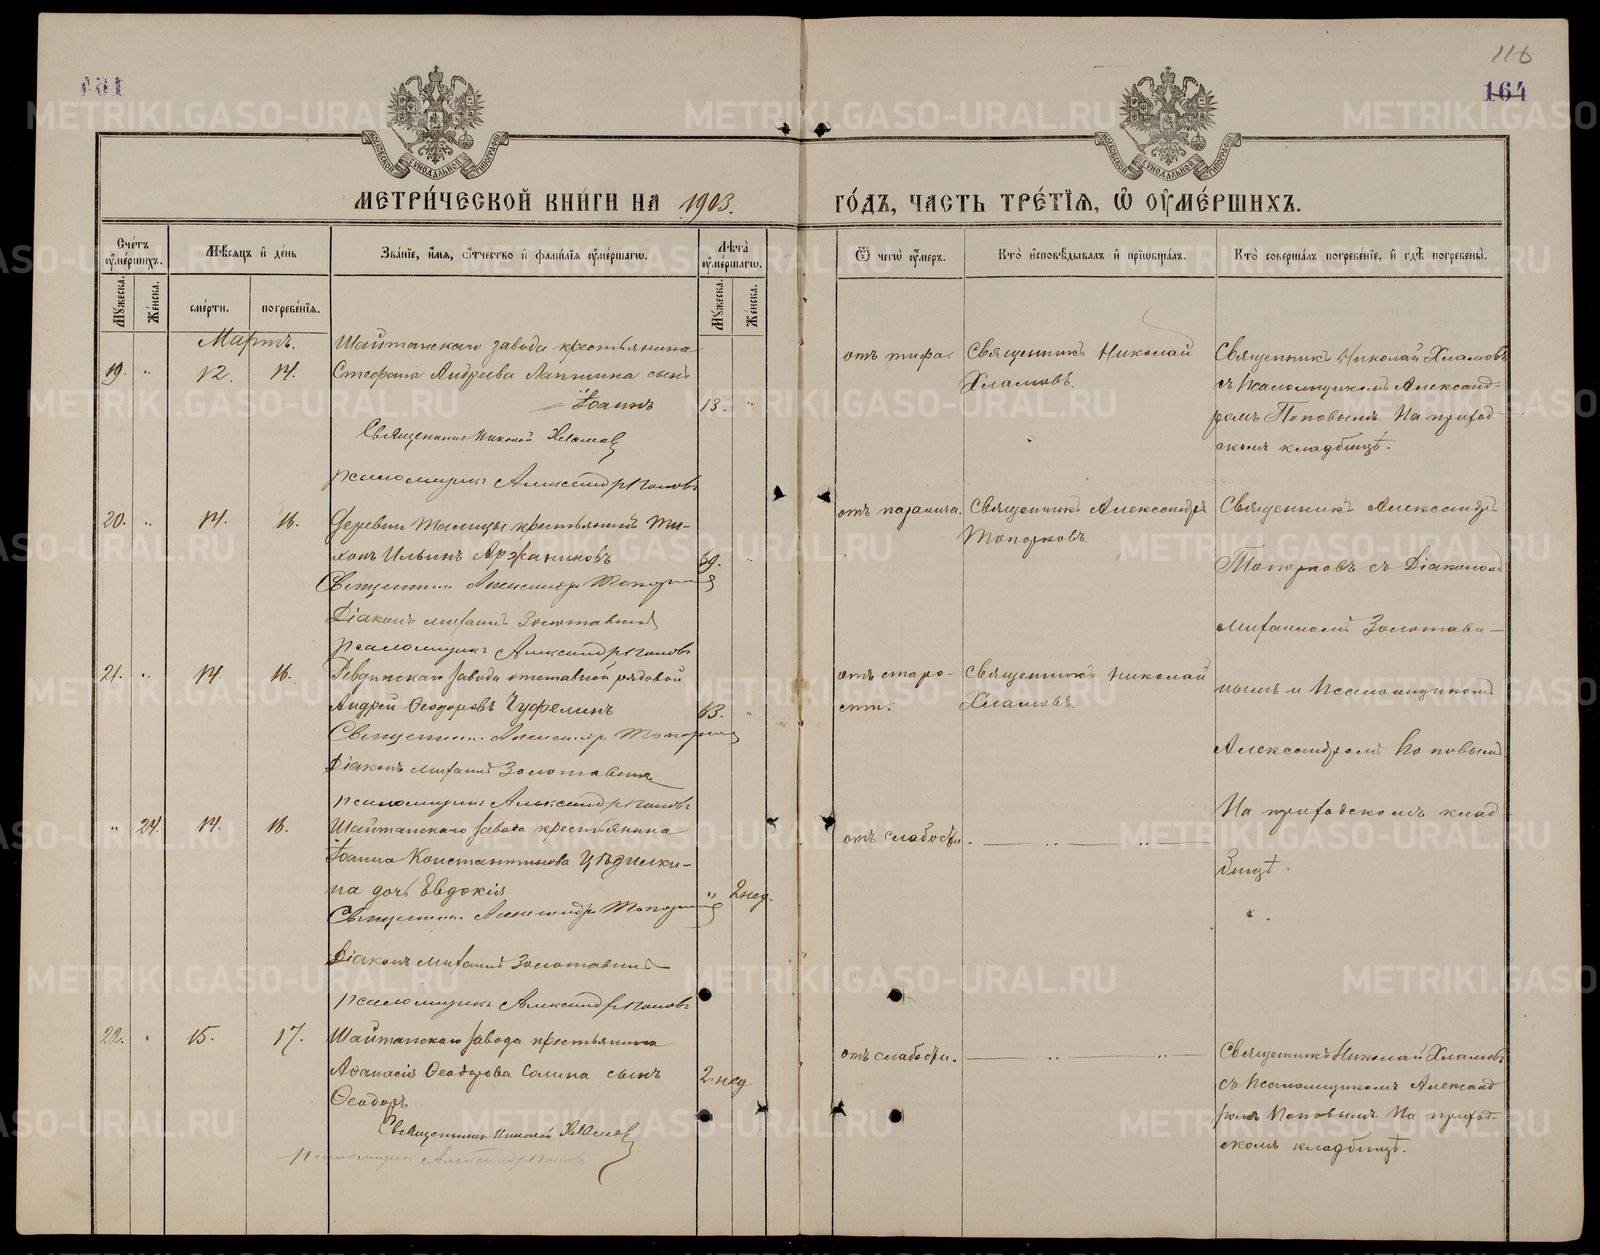 116
164
МЕТРИ́ЧЕСКОЙ КНИ́ГИ НА 1903.
ГО́ДЪ, ЧАСТЬ ТРЕ́ТІѦ, Ѿ ОУ҆МЕ́РШИХЪ.
Сче́тъ оу҆ме́ршихъ.
Мꙋжеска.
Же́нска.
Мѣ́сѧцъ и҆ де́нь
сме́рти.
погребе́нїѧ.
Зва́нїе, и҆́мѧ, ѻ҆́тчество и҆ фами́лїѧ оу҆ме́ршагѡ.
Лѣ́та оу҆ме́ршагѡ.
Мꙋжеска.
Же́нска.
Ѿ чегѡ̀ оу҆́меръ.
Кто̀ и҆сповѣ́дывалъ и҆ прїѡбща́лъ.
Кто̀ соверша́лъ погребе́нїе, и҆ гдѣ̀ погребены̀.
Мартъ.
19. " 12. 14.
Шайтанскаго завода крестьянина
Стефана Андреева Лаптина сынъ
Іоаннъ
13. "
Священникъ Николай Хламов
Псаломщикъ Александръ Поповъ
отъ тифа.
Священникъ Николай
Хламовъ.
Священникъ Николай Хламовъ
съ Псаломщикомъ Александ=
ромъ Поповымъ. На приход-
скомъ кладбищѣ.
20. " 14. 16.
Деревни Талицы крестьянинъ Ти-
хонъ Ильинъ Аржанниковъ
69. "
Священникъ Александръ Топорков
Діаконъ Михаилъ Золотавинъ
Псаломщикъ Александръ Поповъ
отъ паралича.
Священникъ Александръ
Топорковъ.
Священникъ Александръ
Топорковъ съ Діакономъ
Михаиломъ Золотави-
нымъ и Псаломщикомъ
Александромъ Поповымъ
На приходскомъ клад-
бищѣ.
21. " 14. 16.
Ревдинскаго завода отставной рядовой
Андрей Ѳеодоровъ Чуфелинъ
63. "
Священникъ Александръ Топорков
Діаконъ Михаилъ Золотавинъ
Псаломщикъ Александръ Поповъ
отъ старо-
сти.
Священникъ Николай
Хламовъ.
" 24. 14. 16.
Шайтанскаго завода крестьянина
Іоанна Константинова Цѣдилки-
на дочь Евдокія
" 2 нед.
Священникъ Александръ Топорков
Діаконъ Михаилъ Золотавинъ
Псаломщикъ Александръ Поповъ
отъ слабости.
22. " 15. 17.
Шайтанскаго завода крестьянина
Аѳанасія Ѳеодорова Салина сынъ
Ѳеодоръ
2 нед.
Священникъ Николай Хламов
Псаломщикъ Александръ Попов
отъ слабости.
Священникъ Николай Хламовъ
съ Псаломщикомъ Александ
ромъ Поповымъ. На приход-
скомъ кладбищѣ.
METRIKI.GASO-URAL.RU